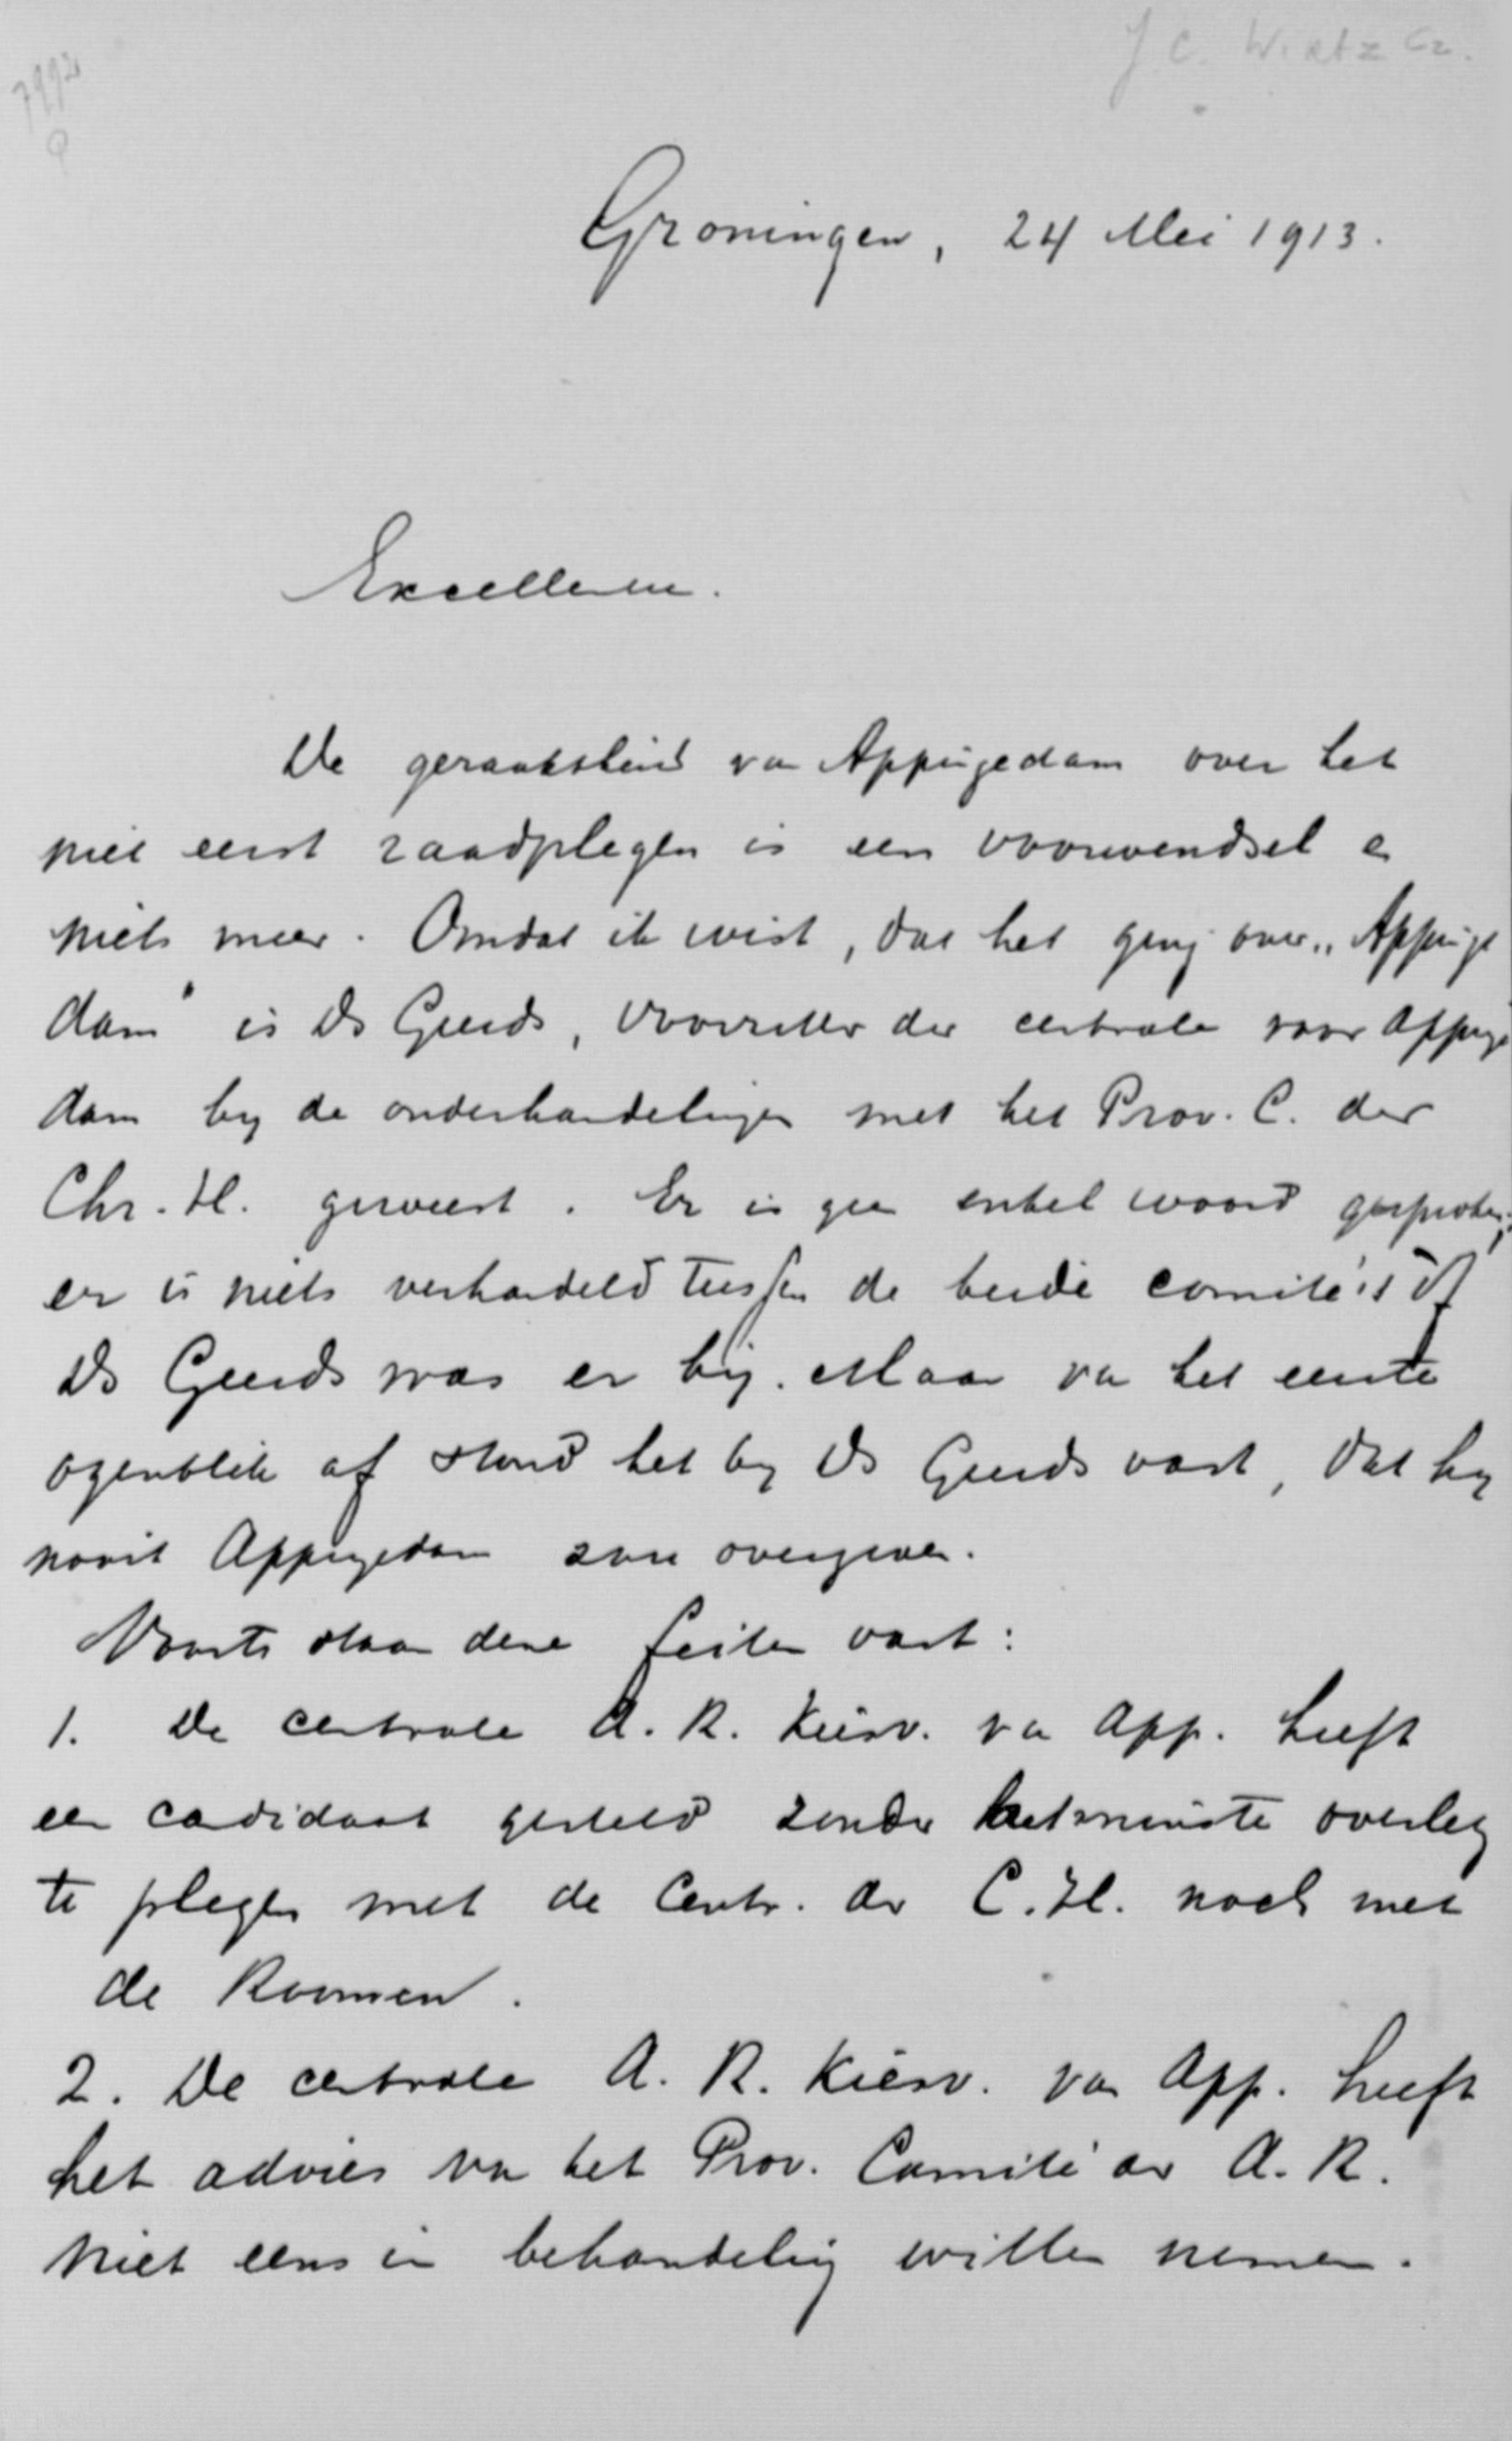 J. C. Wirtz Cz.
7992
Groningen, 24 Mei 1913.
Excellentie.
De geraaktheid van Appingedam over het
niet eerst raadplegen is een voorwendsel en
niets meer. Omdat ik wist, dat het ging over „Appinge
dam" is Ds Geerds, voorzitter der centrale voor Appinge
dam by de onderhandelingen met het Prov. C. der
Chr. H. geweest. Er is geen enkel woord gesproken;
er is niets verhandeld tussen de beide comité's of
Ds Geerds was er by. Maar van het eerste
ogenblik af stond het by Ds Geerds vast, dat hy
nooit Appingedam zou overgeven.
Voorts staan deze feiten vast:
1. De centrale A. R. Kiesv. van App. heeft
een candidaat gesteld zonder het minste overleg
te plegen met de Centr. der C. H. noch met
de Roomen.
2. De centrale A. R. Kiesv. van App. heeft
het advies van het Prov. Comité der A. R.
niet eens in behandeling willen nemen.